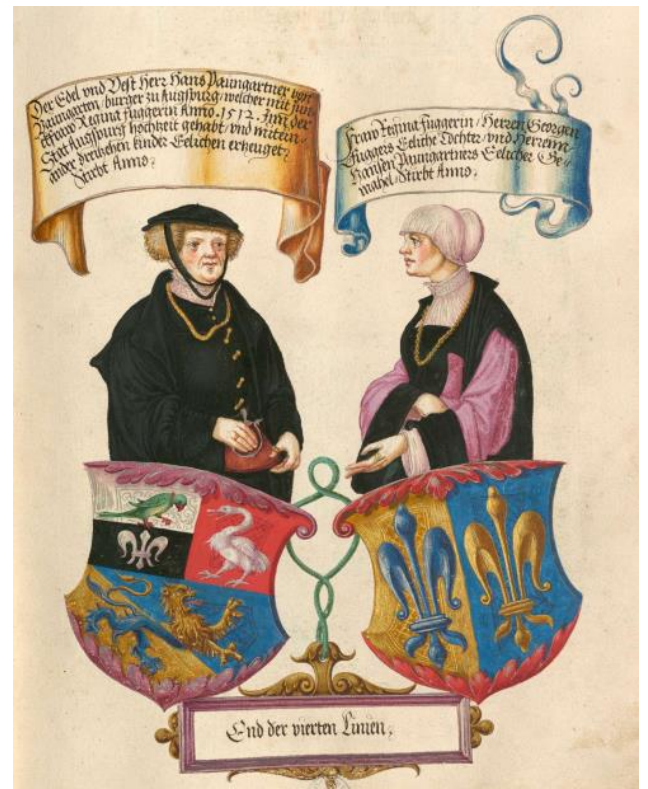 Der Edel vnd Vest Herr Hans Paumgartner von
Paumgarten/burger zu Augspurg/welcher mit Jun-
ckfraw Regina Fuggerin Anno.1512. Inn der
Stat Augspurg hochzeit gehabt/vnd mitein-
ander kinder Eelichen erzeuget.
Stirbt Anno.
Fraw Regina Fuggerin/Herren Georgen
Fuggers Eeliche Tochter/vnd Herrenn
Hansen Paumgartners Eelicher Ge-
mahel/Stirbt Anno.
End der vierten Linien.